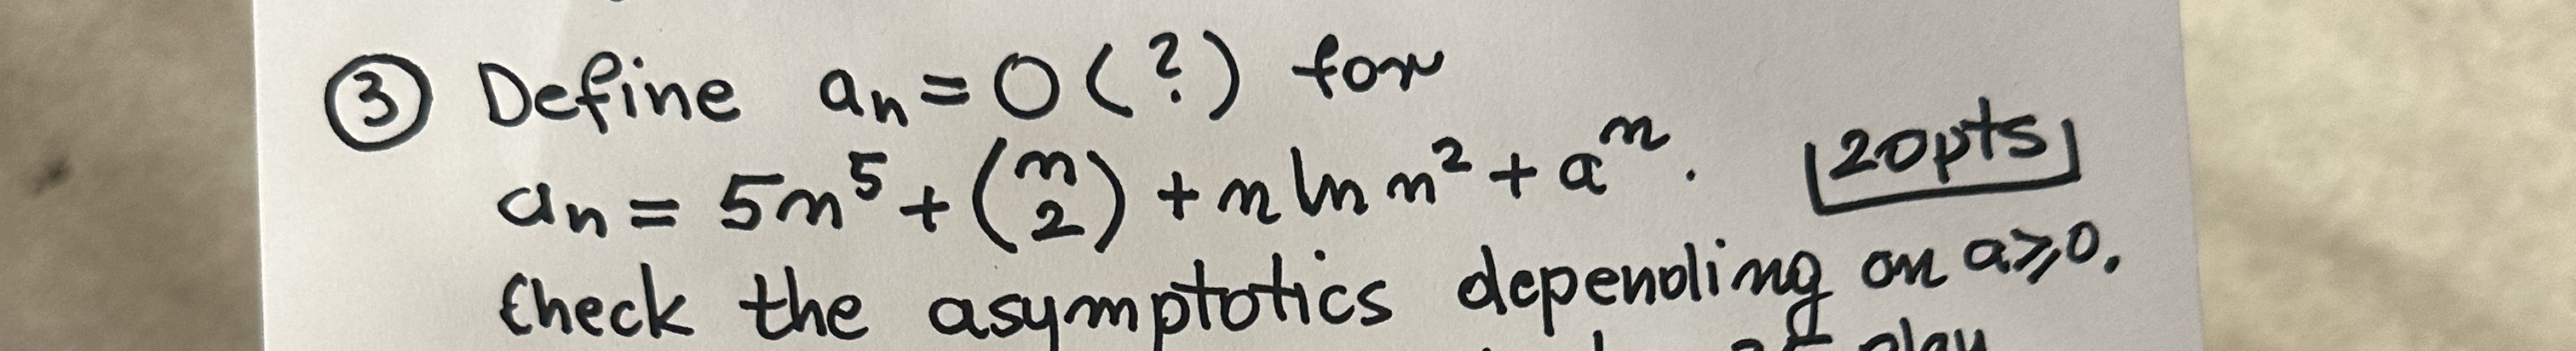 ③ Define aₙ = O(?) for
aₙ = 5n⁵ + (n 2) + n ln n² + aⁿ. [20pts]
Check the asymptotics depending on a⩾0.
play